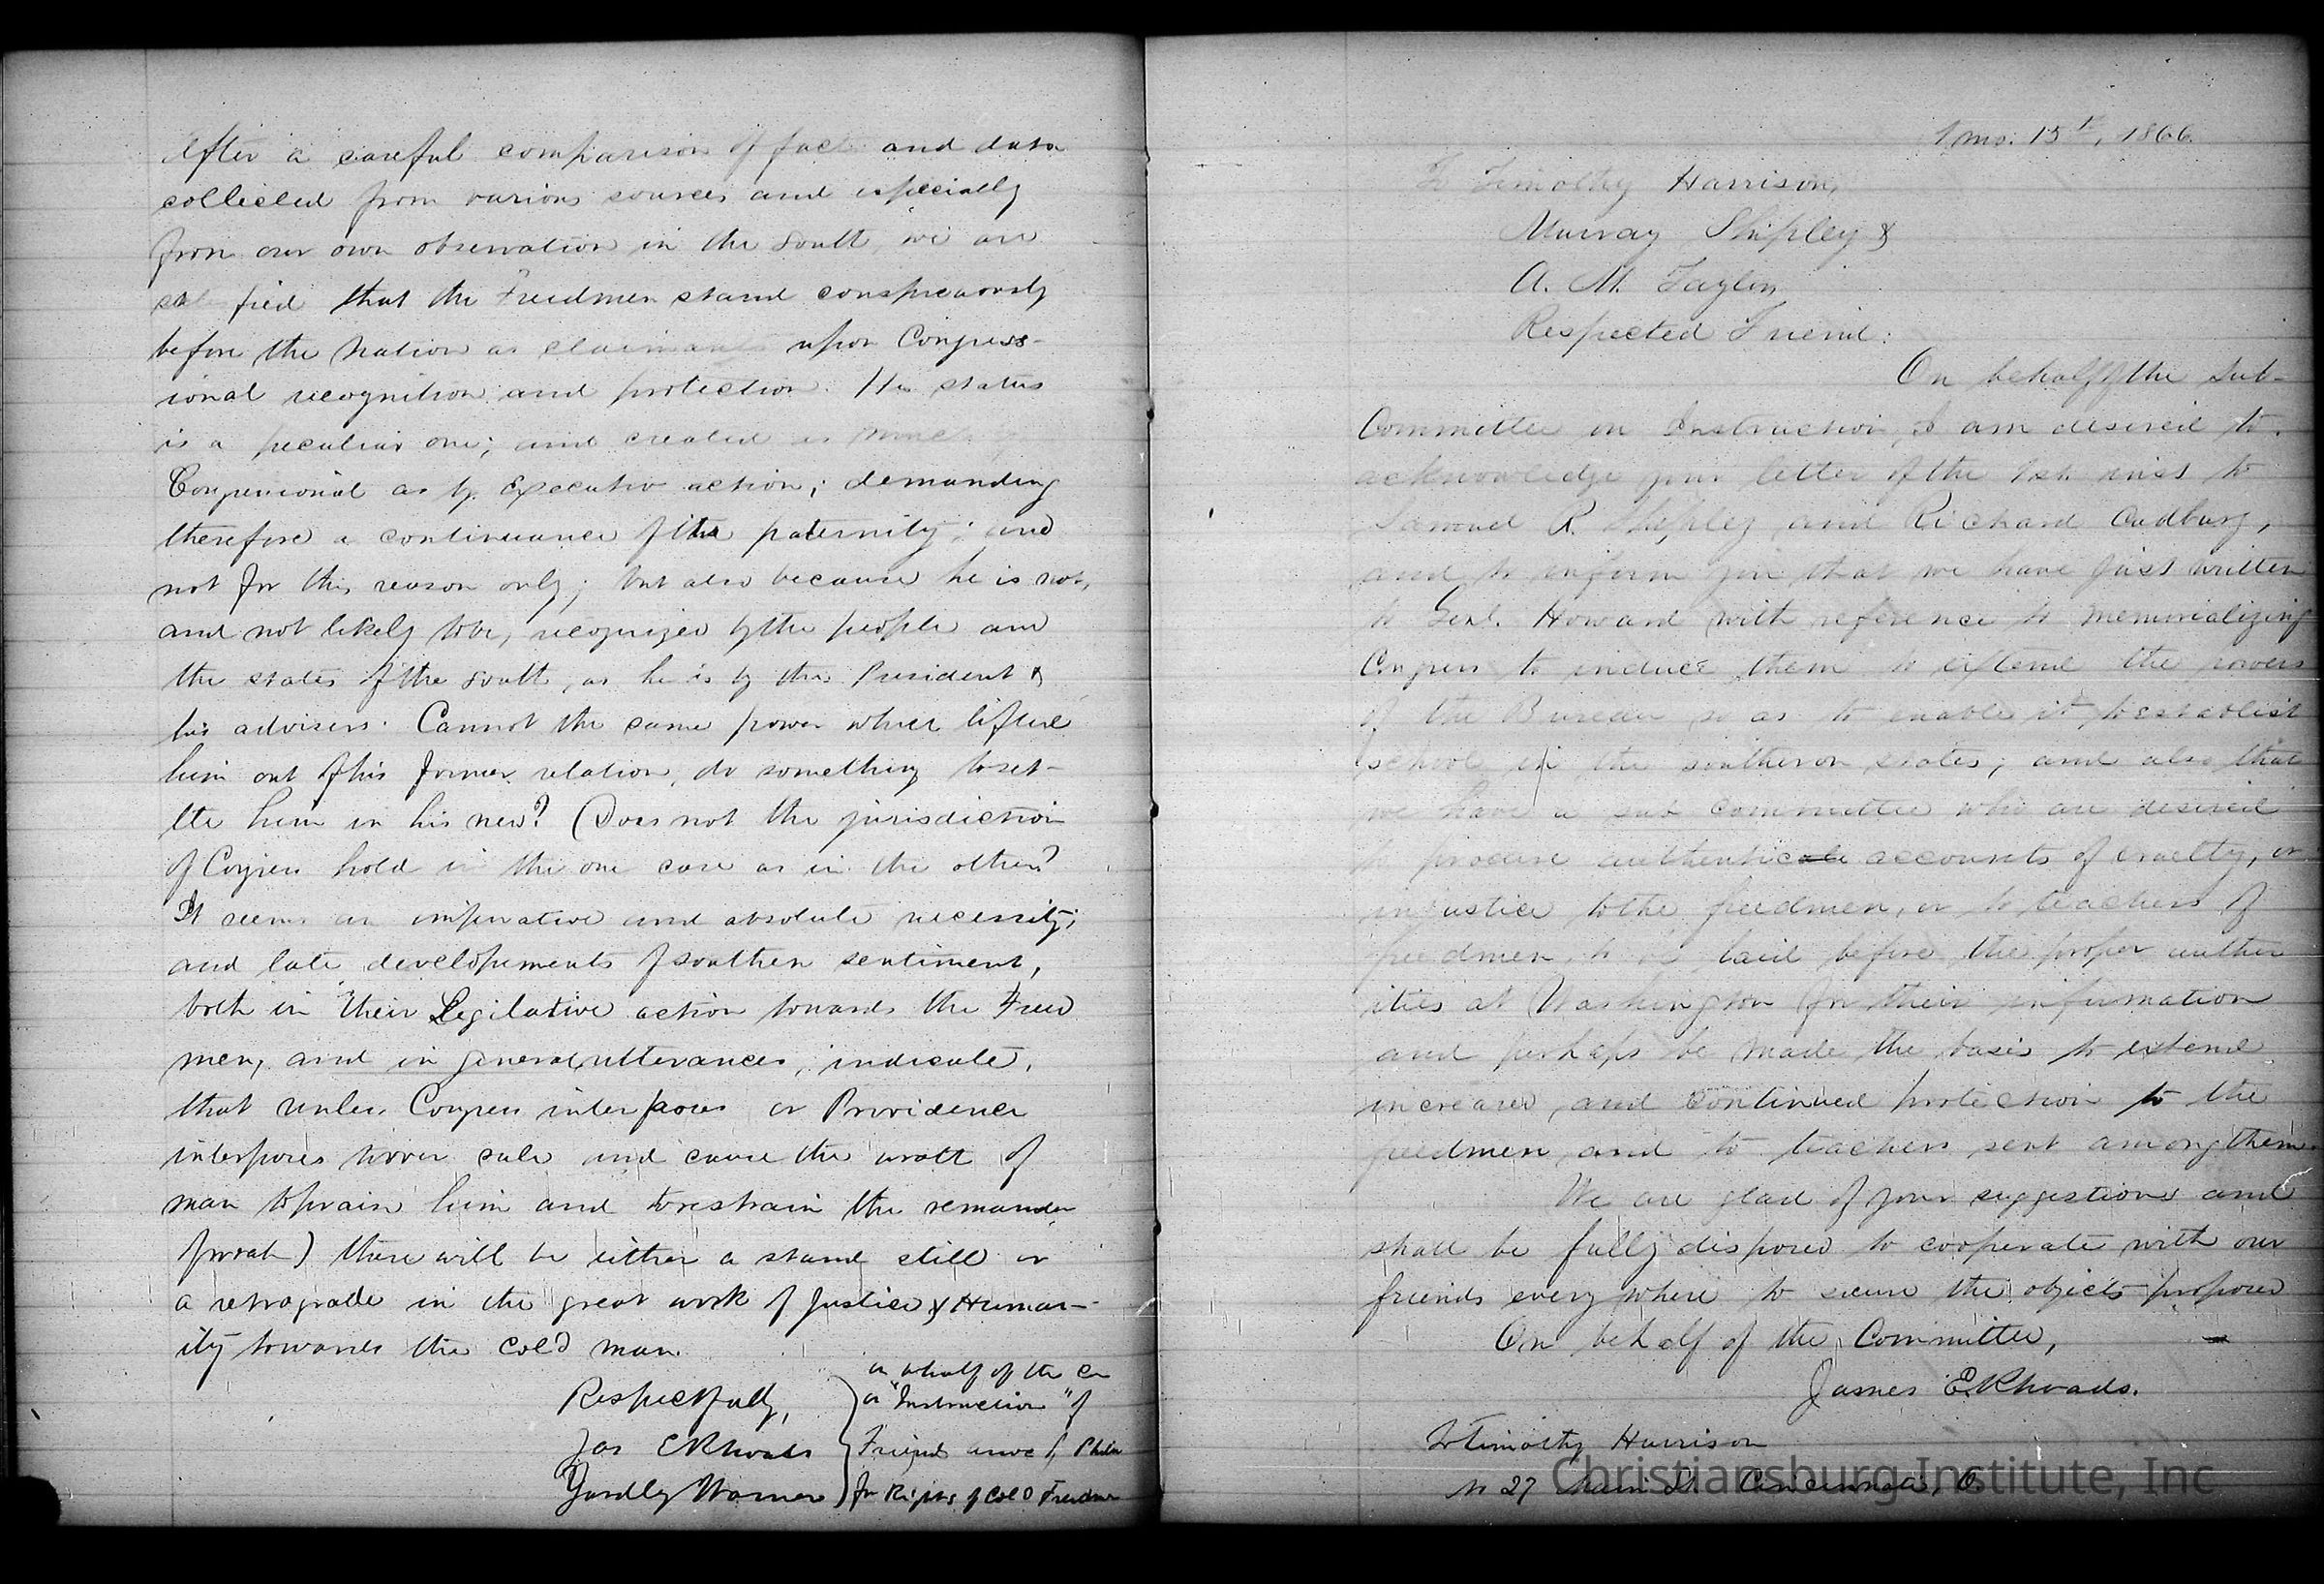 After a careful comparison of fact and data
collected from various sources and especially
from our own observation in the South we are
satisfied that the Freedmen stand conspicuously
before the Nation as claimants upon Congress-
ional recognition and protection. His status
is a peculiar one; and created as much by
Congressional as by Executive action; demanding
therefore a continuance of the paternity; and
not for this reason only; but also because he is not,
and not likely to be, recognized by the people and
the states of the South, as he is by the President &
his advisers. Cannot the same power which lifted
him out of his former relation, do something to set-
tle him in his new? (Does not the jurisdiction
of Congress hold in the one case as in the other?
It seems an imperative and absolute necessity;
and late developements of southern sentiment,
both in their Legilative action towards the Freed
men, and in general utterances, indicate,
that unless Congress interposes or Providence
interposes to over rule and cause the wrath of
man to praise him and to restrain the remainder
of wrath) there will be either a stand still or
a retrograde in the great work of Justice & Human-
ity towards the Col'd man.
Respectfully,
Jas E Rhoads
Yardley Warner
on behalf of the Com
on "Instruction" of
Friends assoc of Phila
for Relief of Col'd Freedmen
1 mo. 15th, 1866.
To Timothy Harrison,
Murray Shipley &
A. M. Taylor,
Respected Friend:
On behalf of the Sub-
Committee on Instruction, I am desired to
acknowledge your letter of the 1st. inst to
Samuel R. Shipley and Richard Cadbury,
and to inform you that we have just written
to Genl. Howard with reference to memorializing
Congress to induce them to extend the powers
of the Bureau so as to enable it to establish
school in the southeron states; and also that
we have a sub committee who are desired
to procure authentic accounts of cruelty, or
injustice to the freedmen, or to teachers of
freedmen, to be laid before the proper author
ities at Washington for their information
and perhaps be made the basis to extend
increased, and continued protection to the
freedmen and to teachers sent among them.
We are glad of your suggestions and
shall be fully disposed to cooperate with our
friends every where to secure the objects proposed
On behalf of the Committee,
James E. Rhoads.
To Timothy Harrison
No 27 Main St. Cincinnati, O.
Christiansburg Institute, Inc